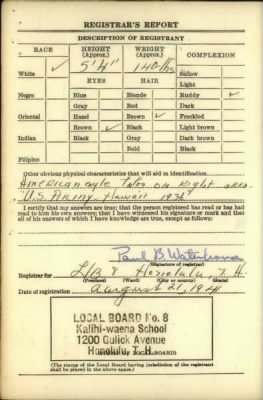 REGISTRAR'S REPORT
DESCRIPTION OF REGISTRANT
RACE HEIGHT (Approx.) WEIGHT (Approx.) COMPLEXION
White ✓ 5'4" 140 lbs Sallow
EYES HAIR Light
Negro Blue Blonde Ruddy ✓
Gray Red Dark
Oriental Hazel Brown ✓ Freckled
Brown ✓ Black Light brown
Indian Black Gray Dark brown
Bald Black
Filipino
Other obvious physical characteristics that will aid in identification
American eagle Tatoo on Right arm
U.S. Army, Hawaii
I certify that my answers are true; that the person registered has read or has had
read to him his own answers; that I have witnessed his signature or mark and that
all of his answers of which I have knowledge are true, except as follows:
Paul B.
(Signature of registrar)
Registrar for L/B 8 Honolulu, T.H.
(Ward) (City or county) (State)
Date of registration August 21, 1941
LOCAL BOARD No. 8
Kalihi-waena School
1200 Gulick Avenue
Honolulu, T. H.
(The stamp of the Local Board having jurisdiction of the registrant
shall be placed in the above space.)